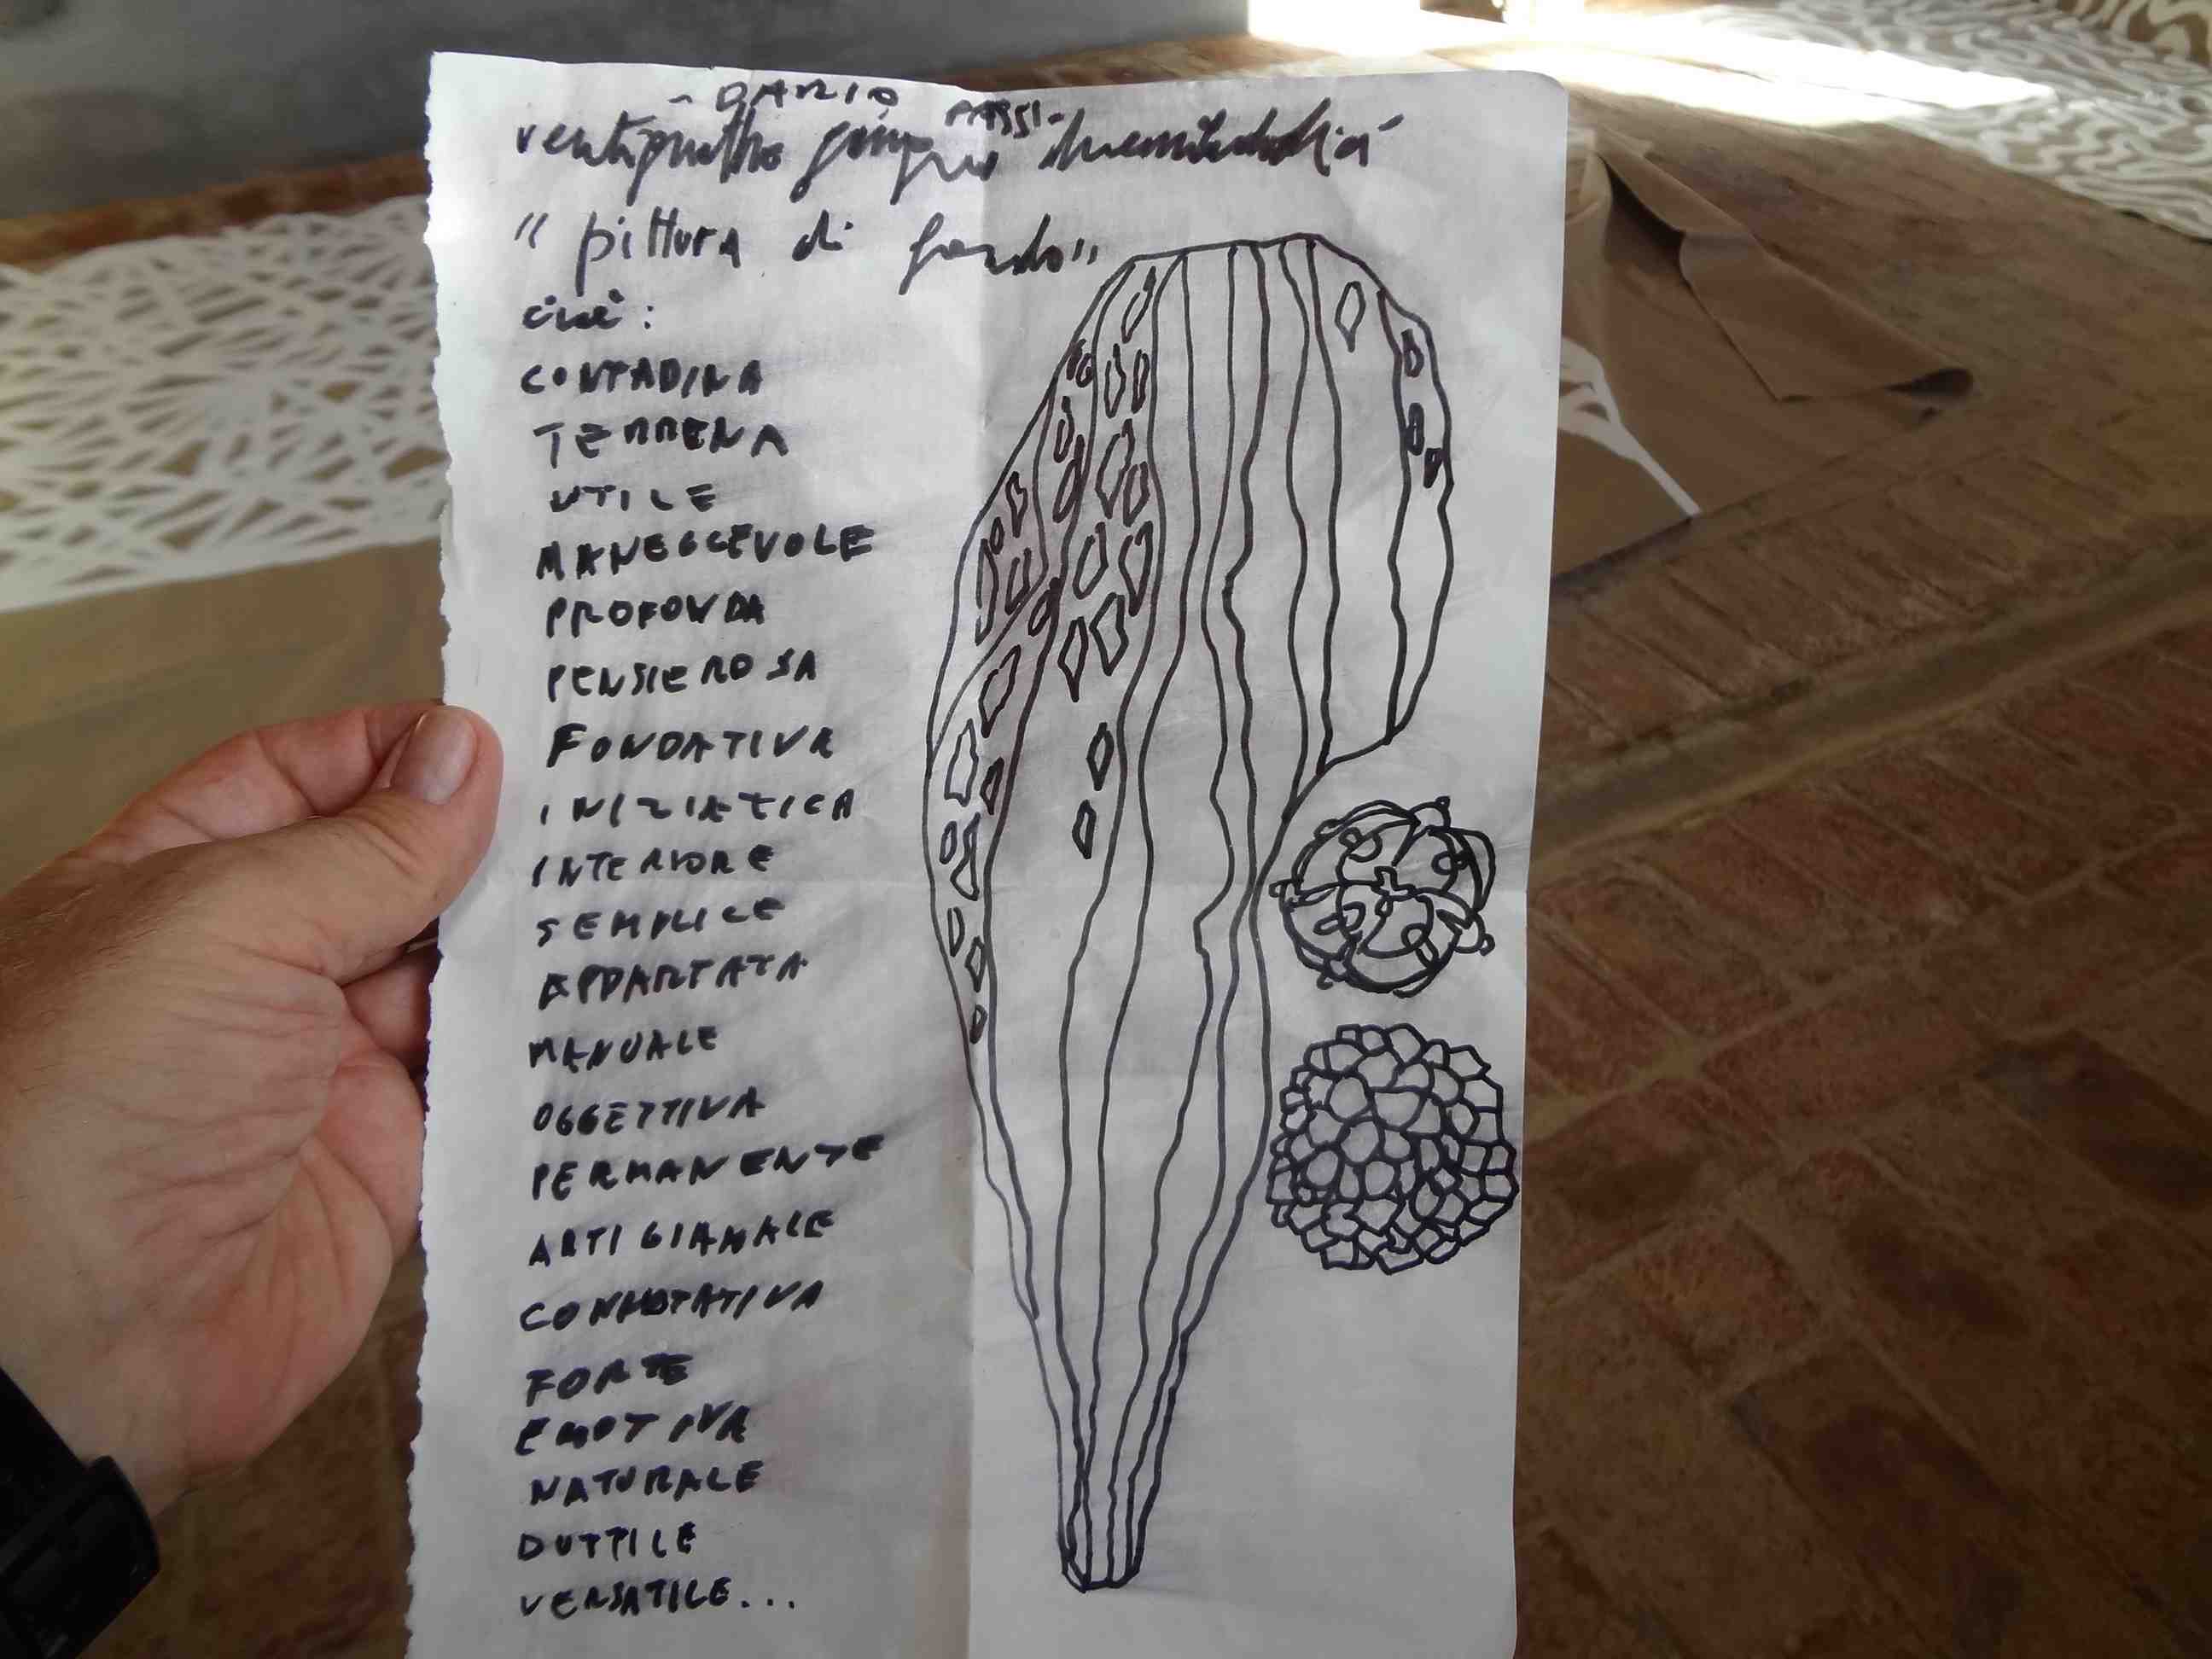 - DARIO PASSI -
ventiquattro giugno duemiladodici
" pittura di fondo "
cioè :
CONTADINA
TERRENA
UTILE
MANEGGEVOLE
PROFONDA
PENSIEROSA
FONDATIVA
INIZIATICA
INTERIORE
SEMPLICE
APPARTATA
MANUALE
OGGETTIVA
PERMANENTE
ARTIGIANALE
CONNOTATIVA
FORTE
EMOTIVA
NATURALE
DUTTILE
VERSATILE...